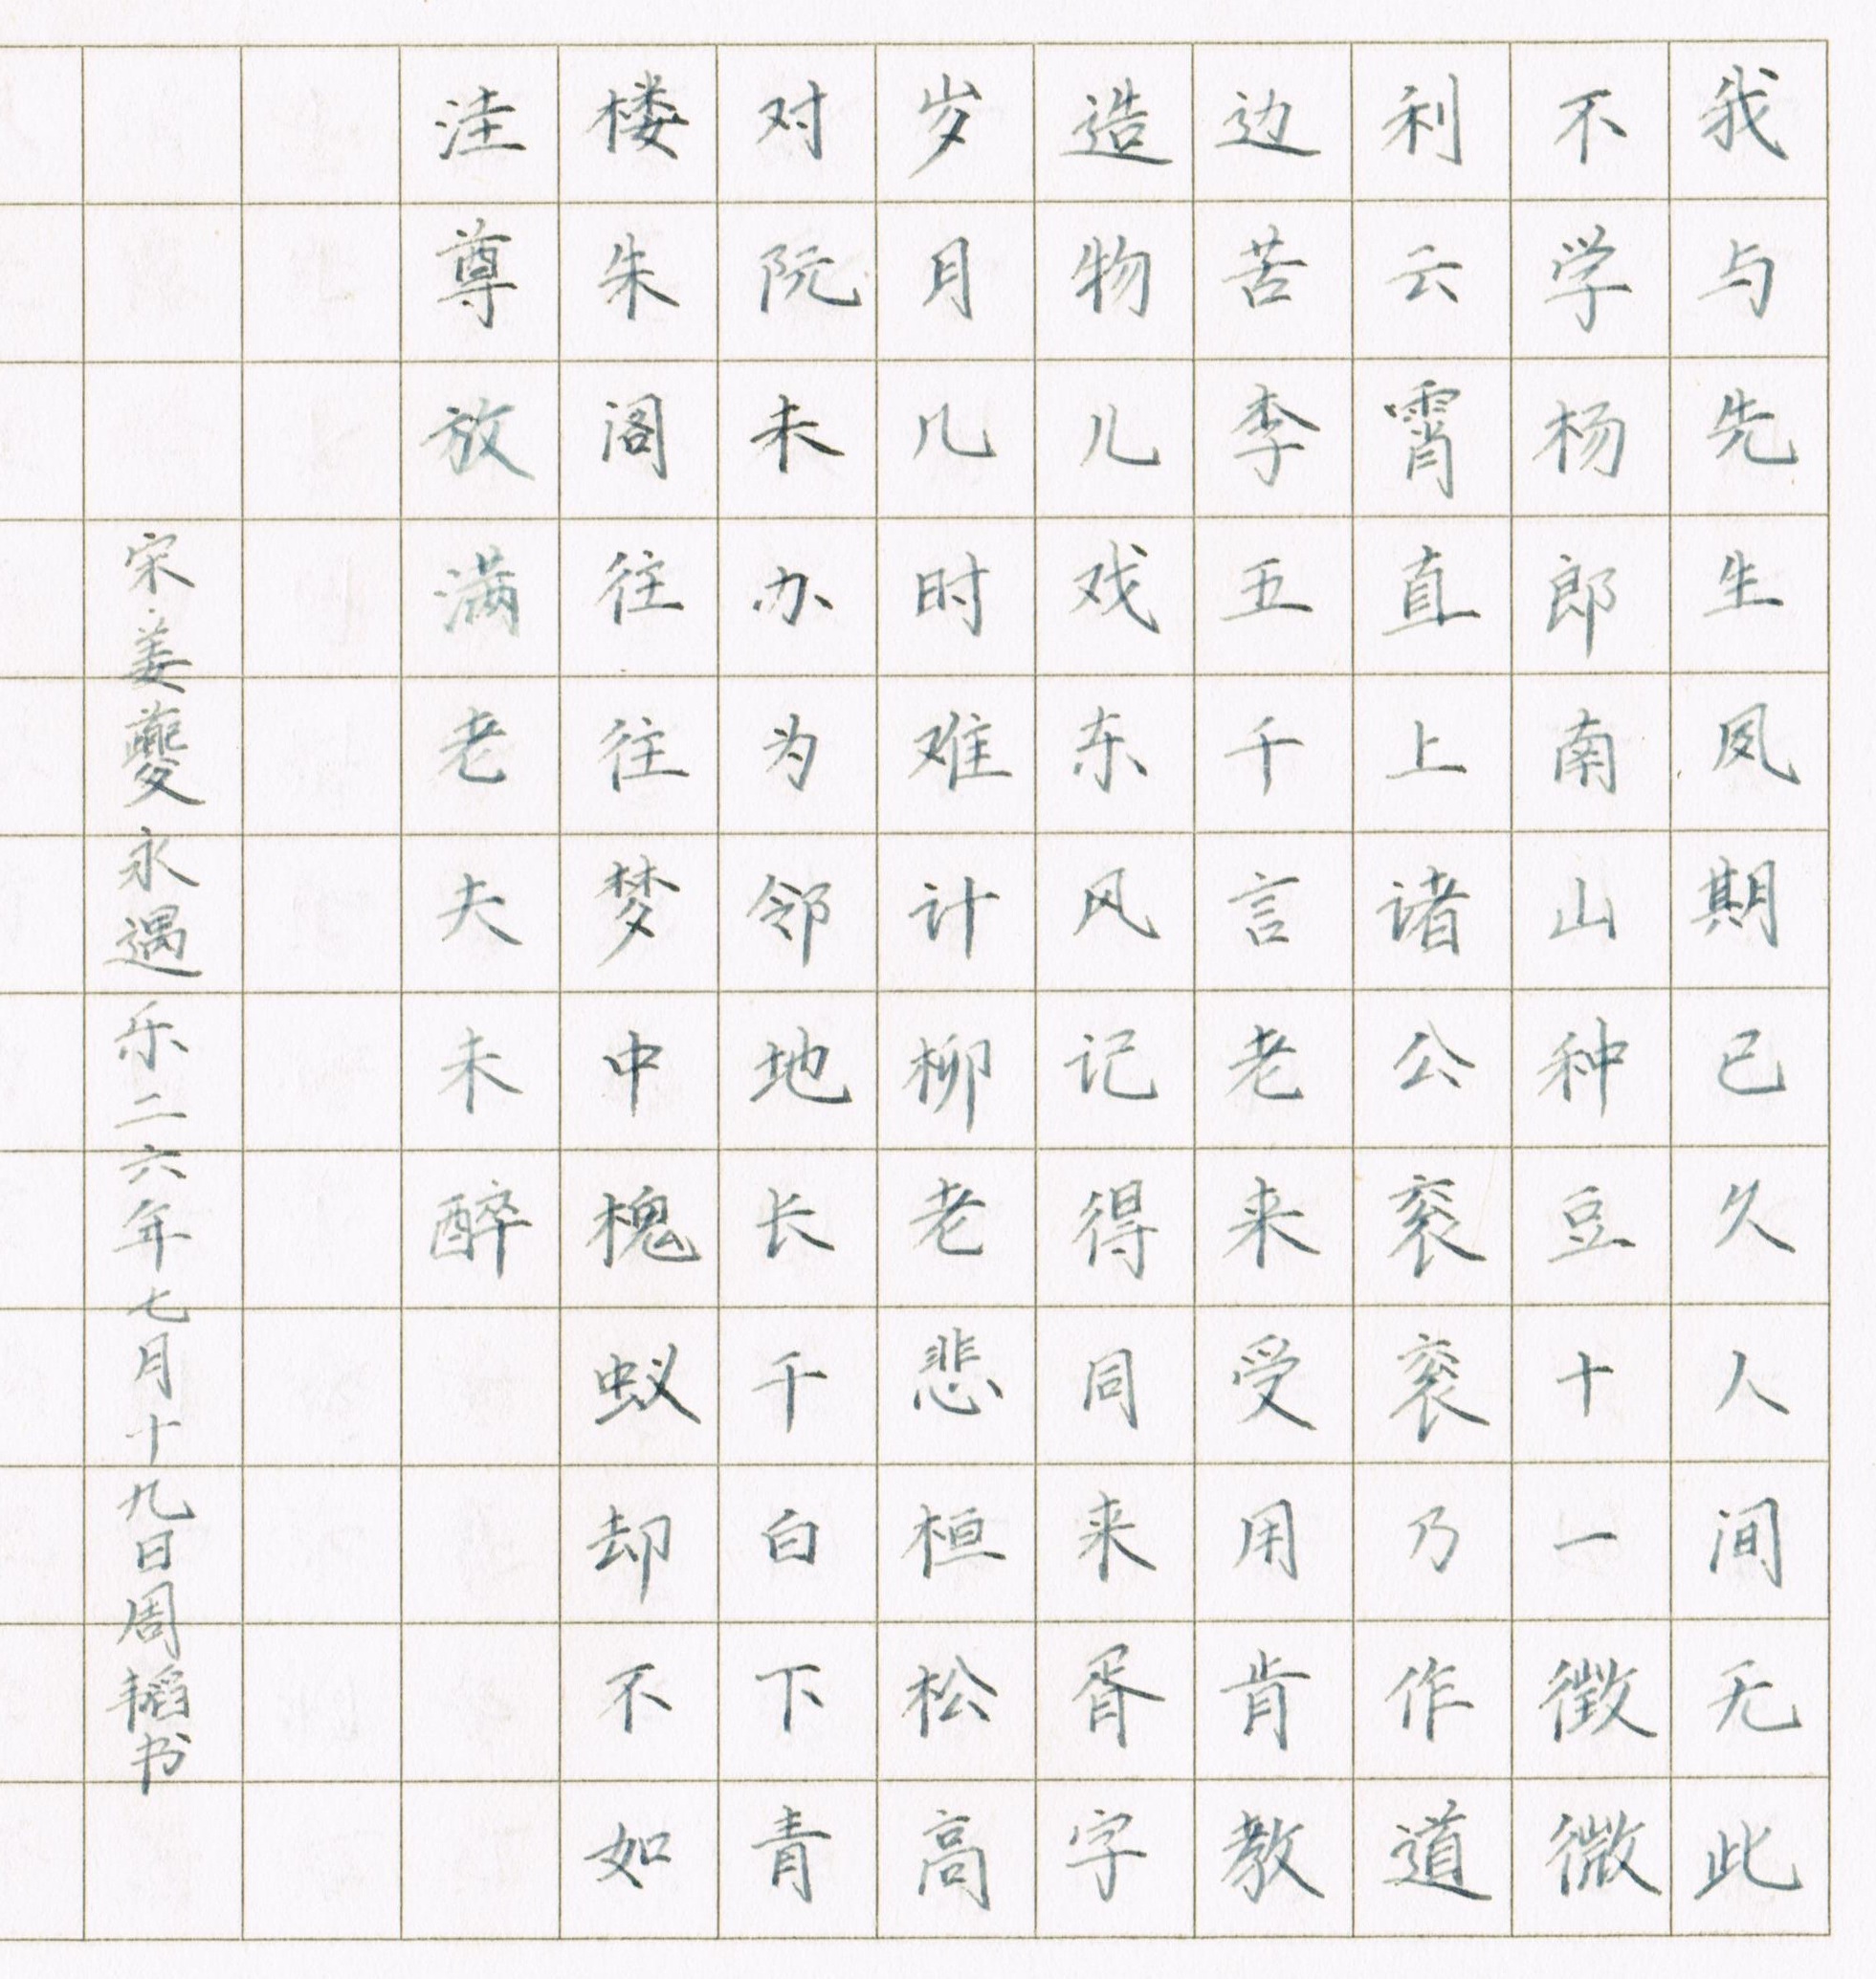 我与先生夙期已久人间无此
不学杨郎南山种豆十一徵微
利云霄直上诸公衮衮乃作道
边苦李五千言老来受用肯教
造物儿戏东风记得同来胥字
岁月几时难计柳老悲桓松高
对阮未办为邻地长干白下青
楼朱阁往往梦中槐蚁却不如
洼尊放满老夫未醉
宋姜夔永遇乐二六年七月十九日周韬书